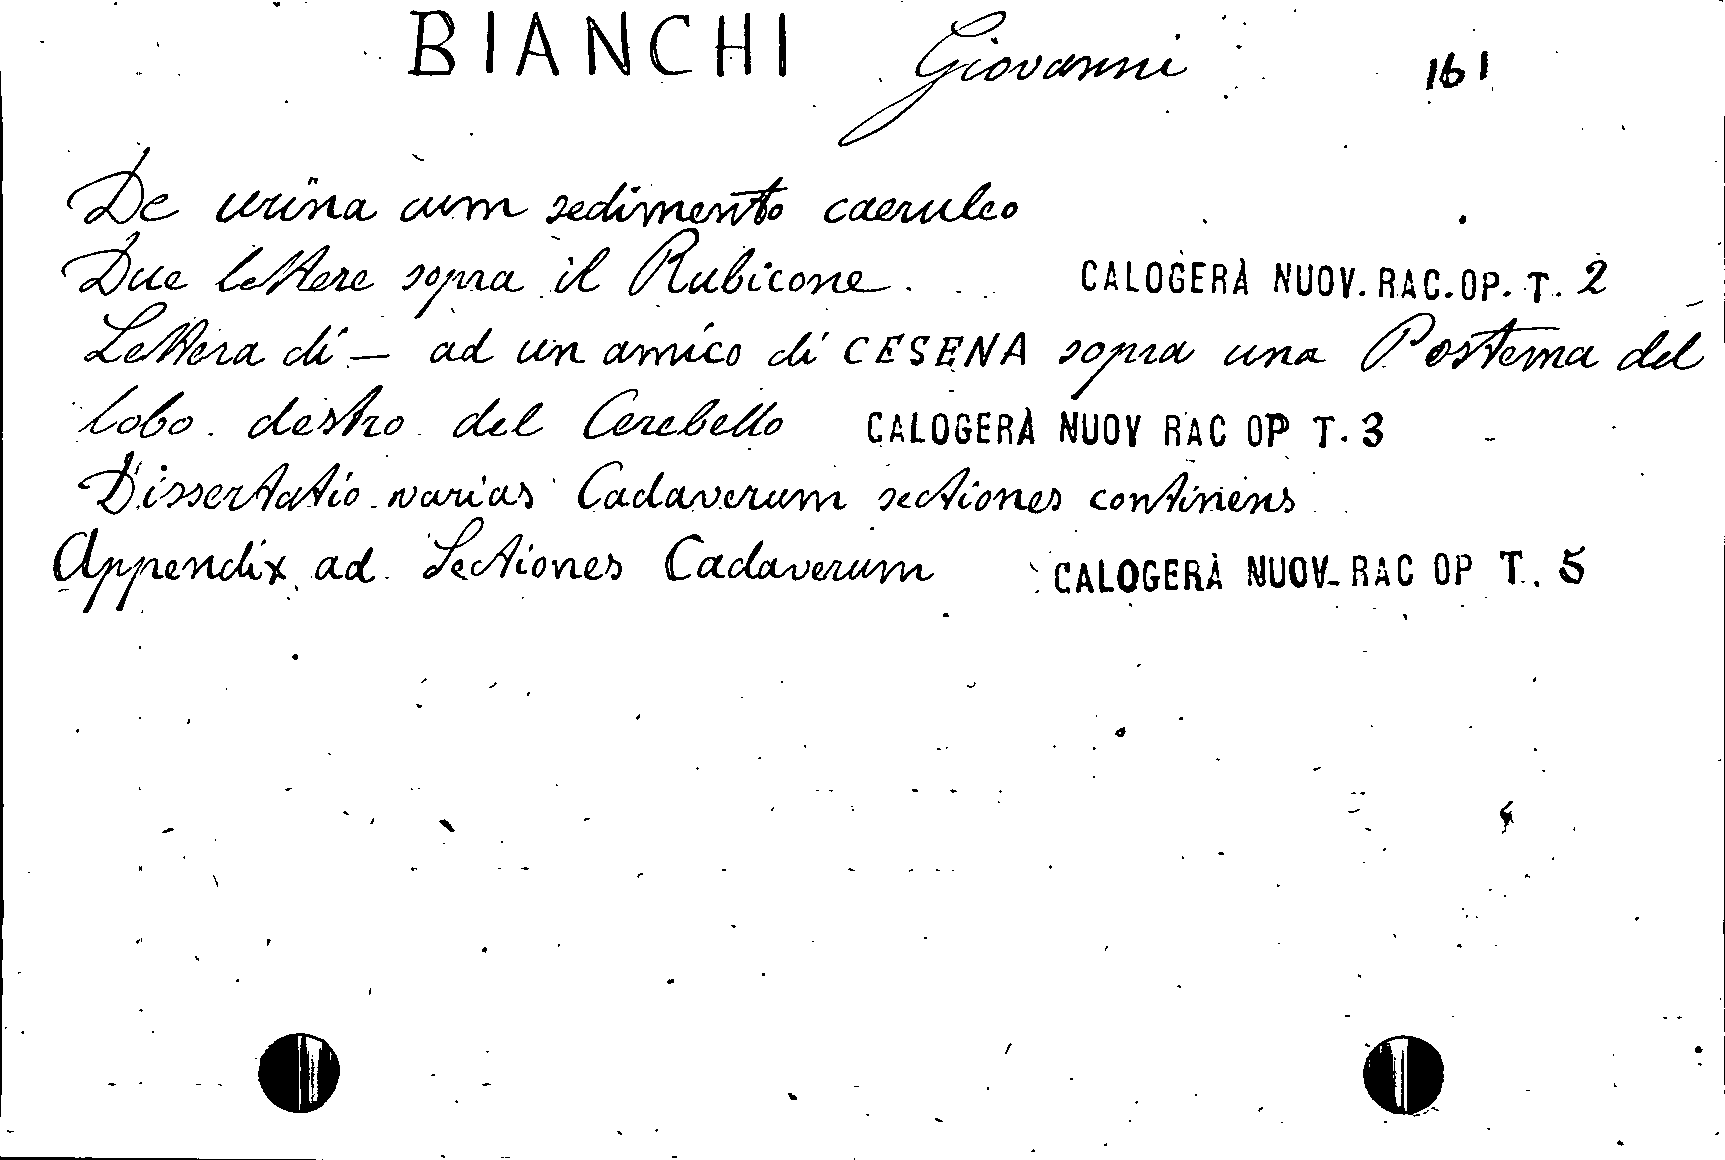 BIANCHI Giovanni 161
De urina cum sedimento caeruleo
Due lettere sopra il Rubicone. CALOGERÀ NUOV. RAC. OP. T. 2
Lettera di — ad un amico di CESENA sopra una Postema del
lobo destro del Cerebello CALOGERÀ NUOV RAC OP T. 3
Dissertatio varias Cadaverum sectiones continens
Appendix ad Sectiones Cadaverum CALOGERÀ NUOV. RAC OP T. 5